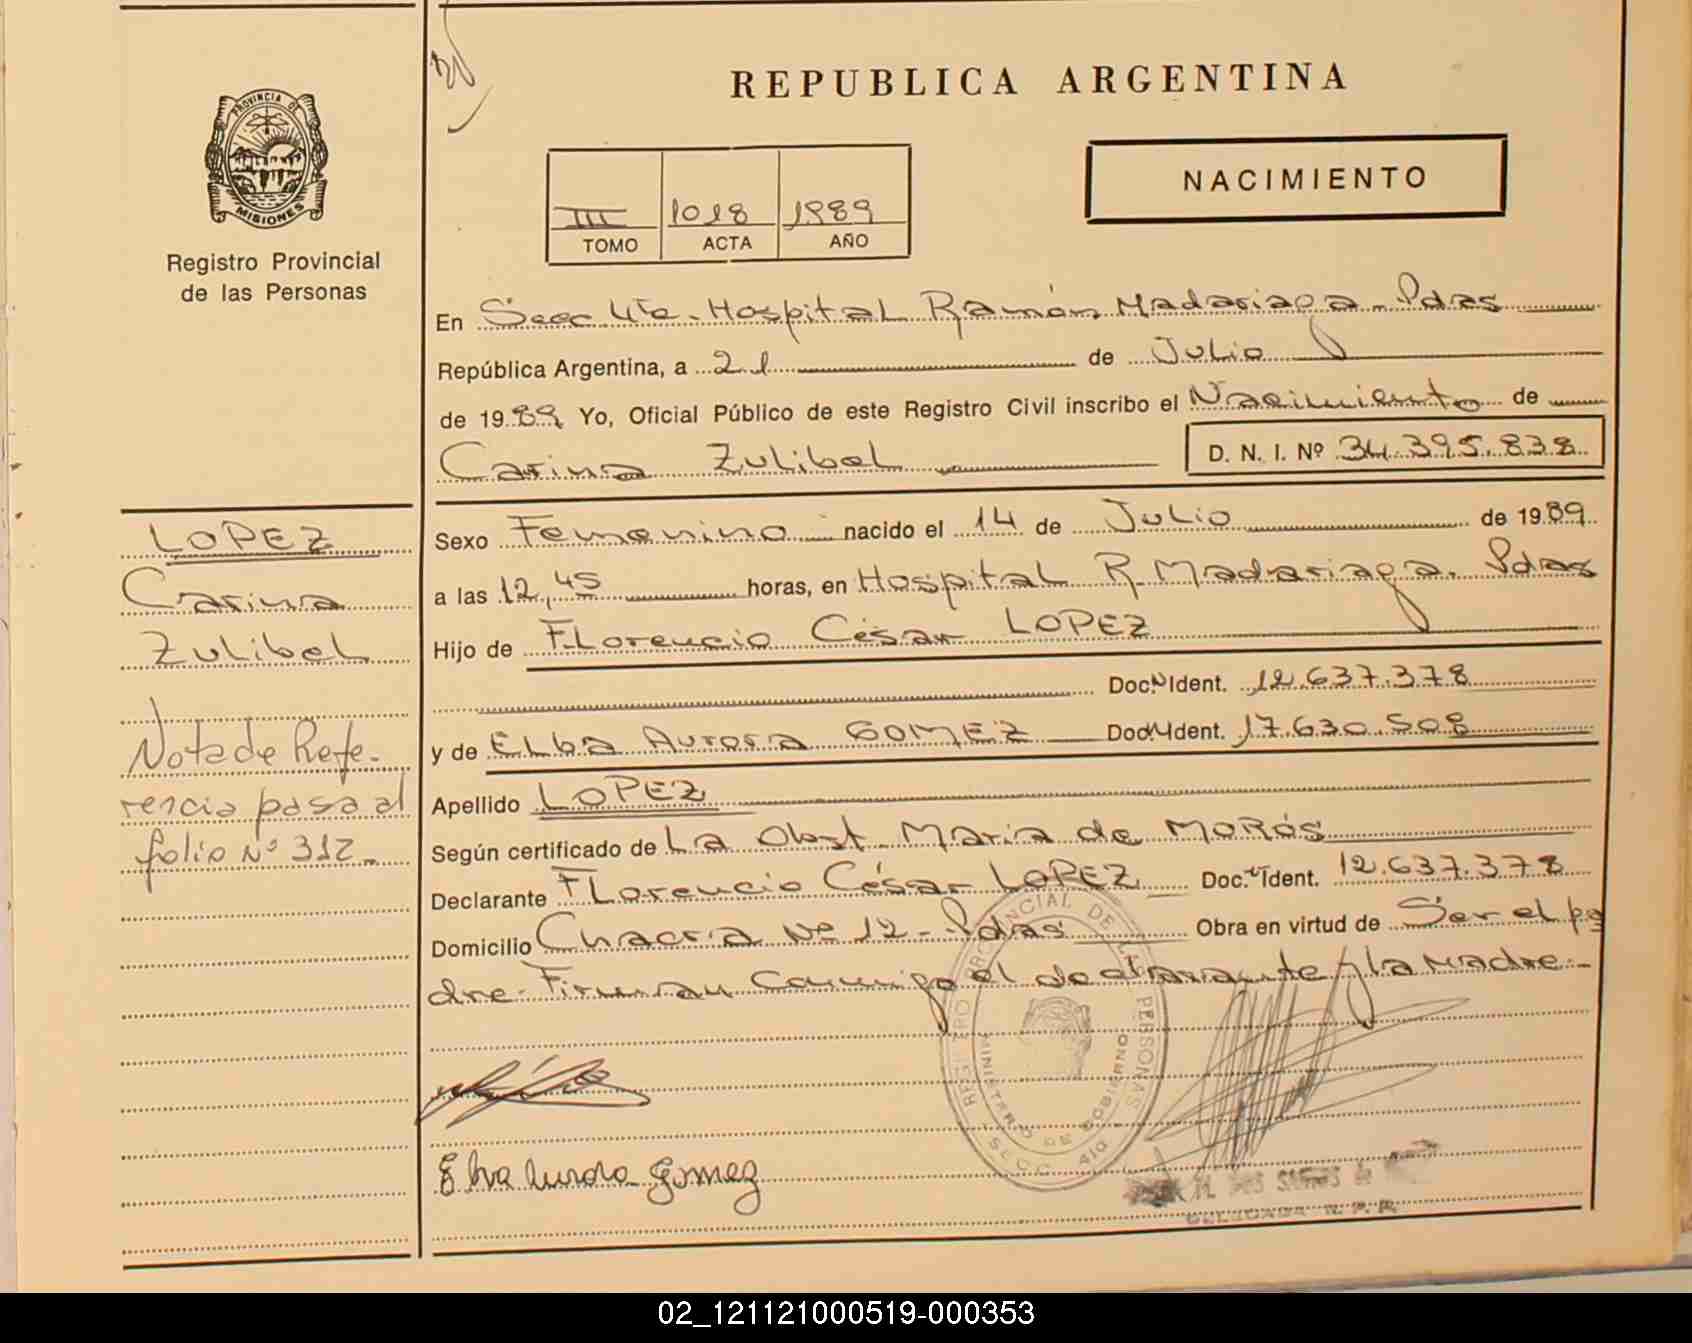 REPUBLICA ARGENTINA
PROVINCIA DE
MISIONES
Registro Provincial
de las Personas
III 1018 1989
TOMO ACTA AÑO
NACIMIENTO
En Secc 4ta. Hospital Ramón Madariaga. Pdas
República Argentina, a 21 de Julio
de 1989 Yo, Oficial Público de este Registro Civil inscribo el Nacimiento de
Carina Zulibel D. N. I. Nº 34.395.838
LOPEZ
Carina
Zulibel
Nota de Refe-
rencia pasa al
folio Nº 312
Sexo Femenino nacido el 14 de Julio de 1989
a las 12,45 horas, en Hospital R. Madariaga. Pdas
Hijo de Florencio César LOPEZ
Doc. Ident. 12.637.378
y de Elba Aurora GOMEZ Doc. Ident. 17.630.508
Apellido LOPEZ
Según certificado de La Obst. Maria de Morós
Declarante Florencio César LOPEZ Doc. Ident. 12.637.378
Domicilio Chacra Nº 12 - Pdas Obra en virtud de Ser el pa
dre - Firman Conmigo el declarante y la Madre.-
REGISTRO PROVINCIAL DE LAS PERSONAS
MINISTERIO DE GOBIERNO
SECC. 4ta
Elva Aurora Gomez
DELEGADA R. P. P.
02_121121000519-000353